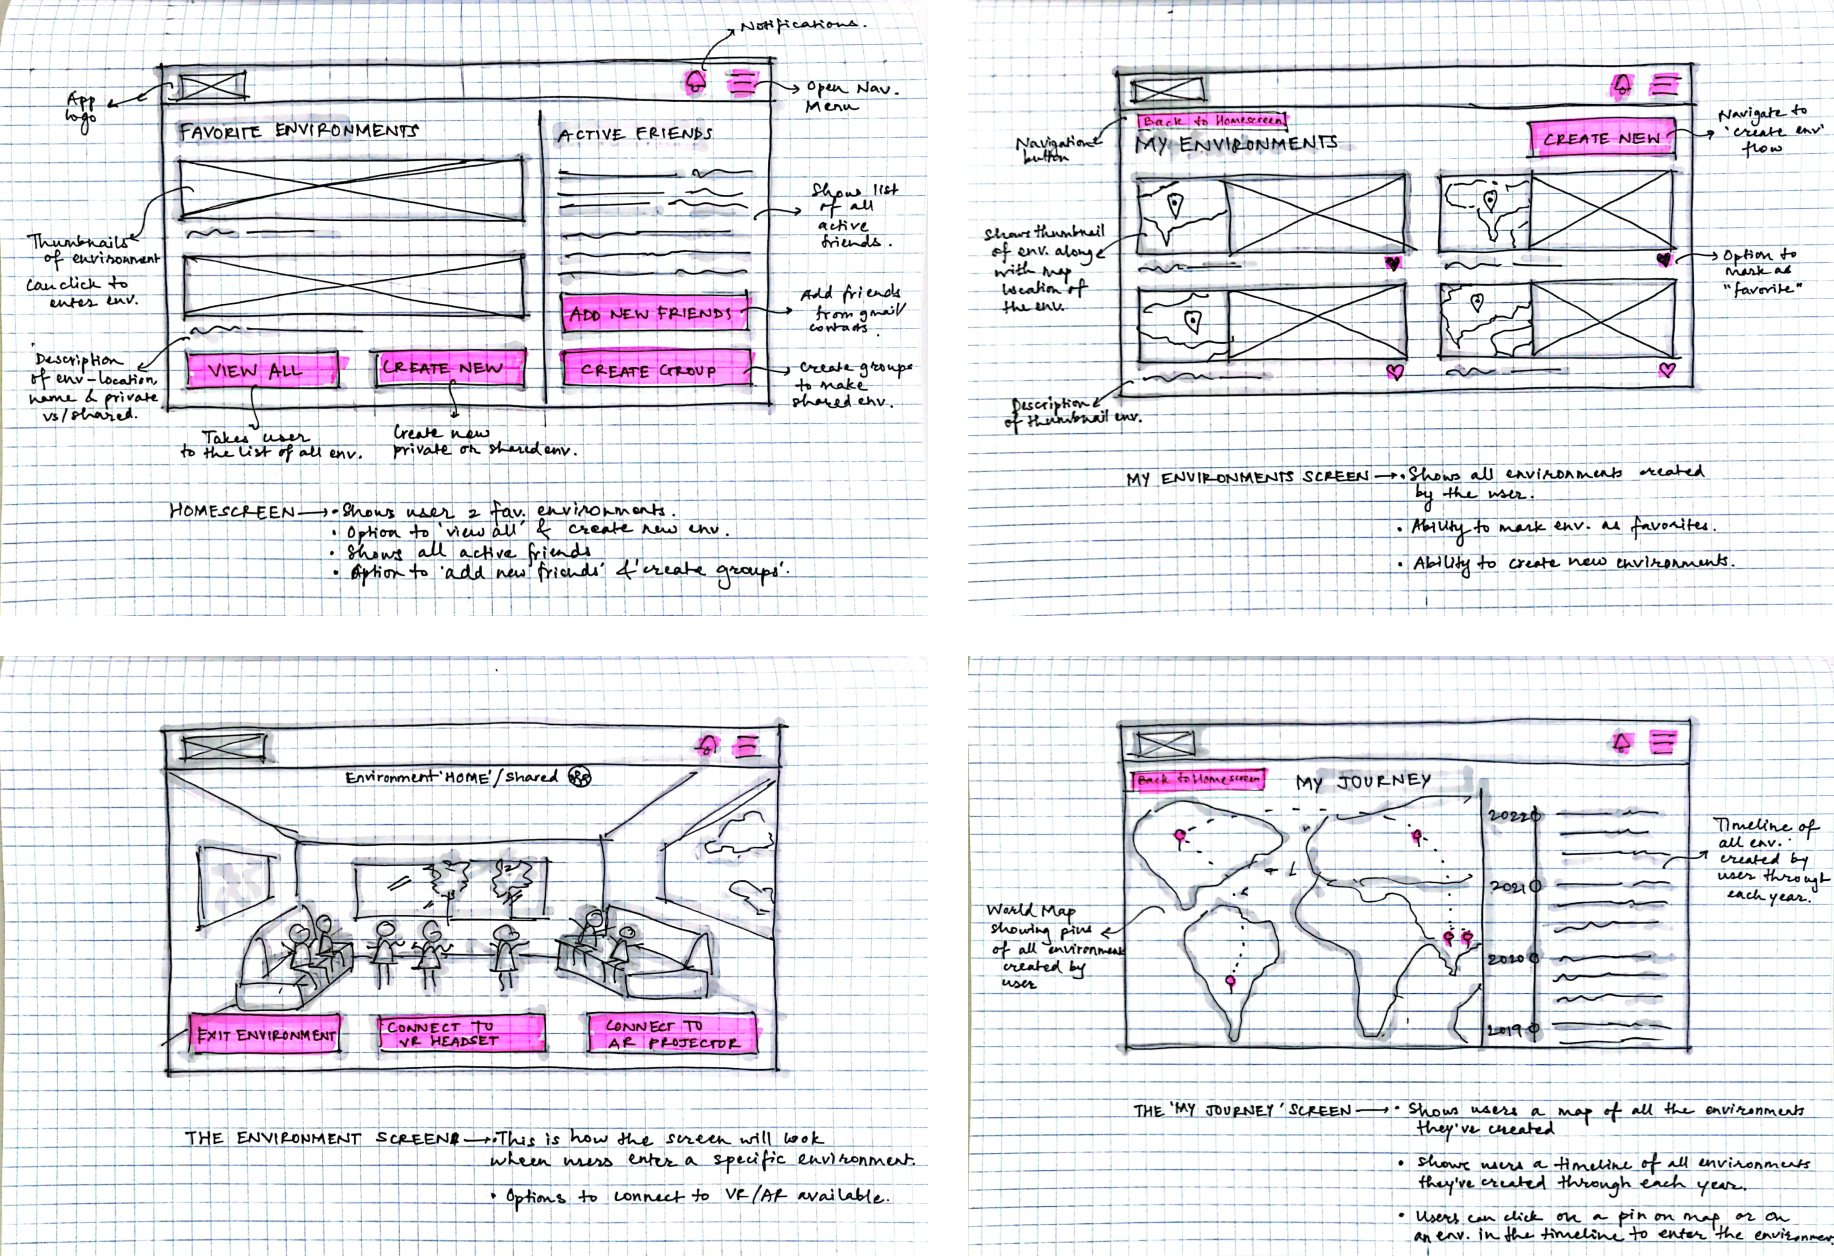 Notifications.
App
logo
Open Nav.
Menu
FAVORITE ENVIRONMENTS
ACTIVE FRIENDS
Shows list
of all
active
friends.
Thumbnails
of environment
Can click to
enter env.
ADD NEW FRIENDS
Add friends
from gmail/
contacts.
Description
of env-location,
name & private
vs/shared.
VIEW ALL
CREATE NEW
CREATE GROUP
Create groups
to make
shared env.
Takes user
to the list of all env.
Create new
private or shared env.
HOMESCREEN → • Shows user 2 fav. environments.
• Option to 'view all' & create new env.
• Shows all active friends
• Option to 'add new friends' & 'create groups'.
Back to Homescreen
Navigation
button
MY ENVIRONMENTS
CREATE NEW
Navigate to
'create env'
flow
Shows thumbnail
of env. along
with map
location of
the env.
Option to
mark as
"favorite"
Description
of thumbnail env.
MY ENVIRONMENTS SCREEN → • Shows all environments created
by the user.
• Ability to mark env. as favorites.
• Ability to create new environments.
Environment 'HOME' / Shared
EXIT ENVIRONMENT
CONNECT TO
VR HEADSET
CONNECT TO
AR PROJECTOR
THE ENVIRONMENT SCREEN → • This is how the screen will look
wheen users enter a specific environment.
• Options to connect to VR/AR available.
Back to Homescreen
MY JOURNEY
2022
2021
2020
2019
Timeline of
all env.
created by
user through
each year.
World Map
showing pins
of all environment
created by
user
THE 'MY JOURNEY' SCREEN → • Shows users a map of all the environments
they've created
• Shows users a timeline of all environments
they've created through each year.
• Users can click on a pin on map or on
an env. in the timeline to enter the environmen